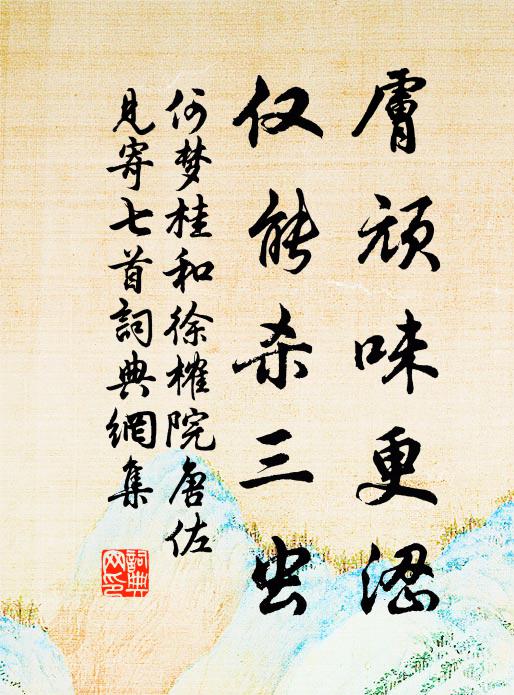 膚頑味更澀
仅能杀三虫
何梦桂和徐榷院唐佐
見寄七首詞典網集
詞典網印